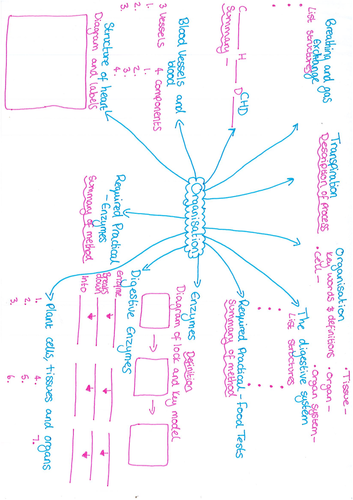 Organisation
Breathing and gas
Exchange
• List structures
•
•
•
Transpiration
Description of process
Organisation
Key words & definitions
• Cell –
• Tissue –
• Organ –
• Organ system –
The digestive system
List structures
Required Practical – Food Tests
Summary of method
Enzymes
Definition
Diagram of lock and key model
Digestive Enzymes
Enzyme
Breaks
down
Into
Plant cells, tissues and organs
1.
2.
3.
4.
5.
6.
7.
Required Practical
– Enzymes
Summary of method
Structure of heart
Diagram and labels
Blood Vessels and
blood
3 Vessels
1.
2.
3.
4 Components
1.
2.
3.
4.
CHD
C
H
D
Summary –